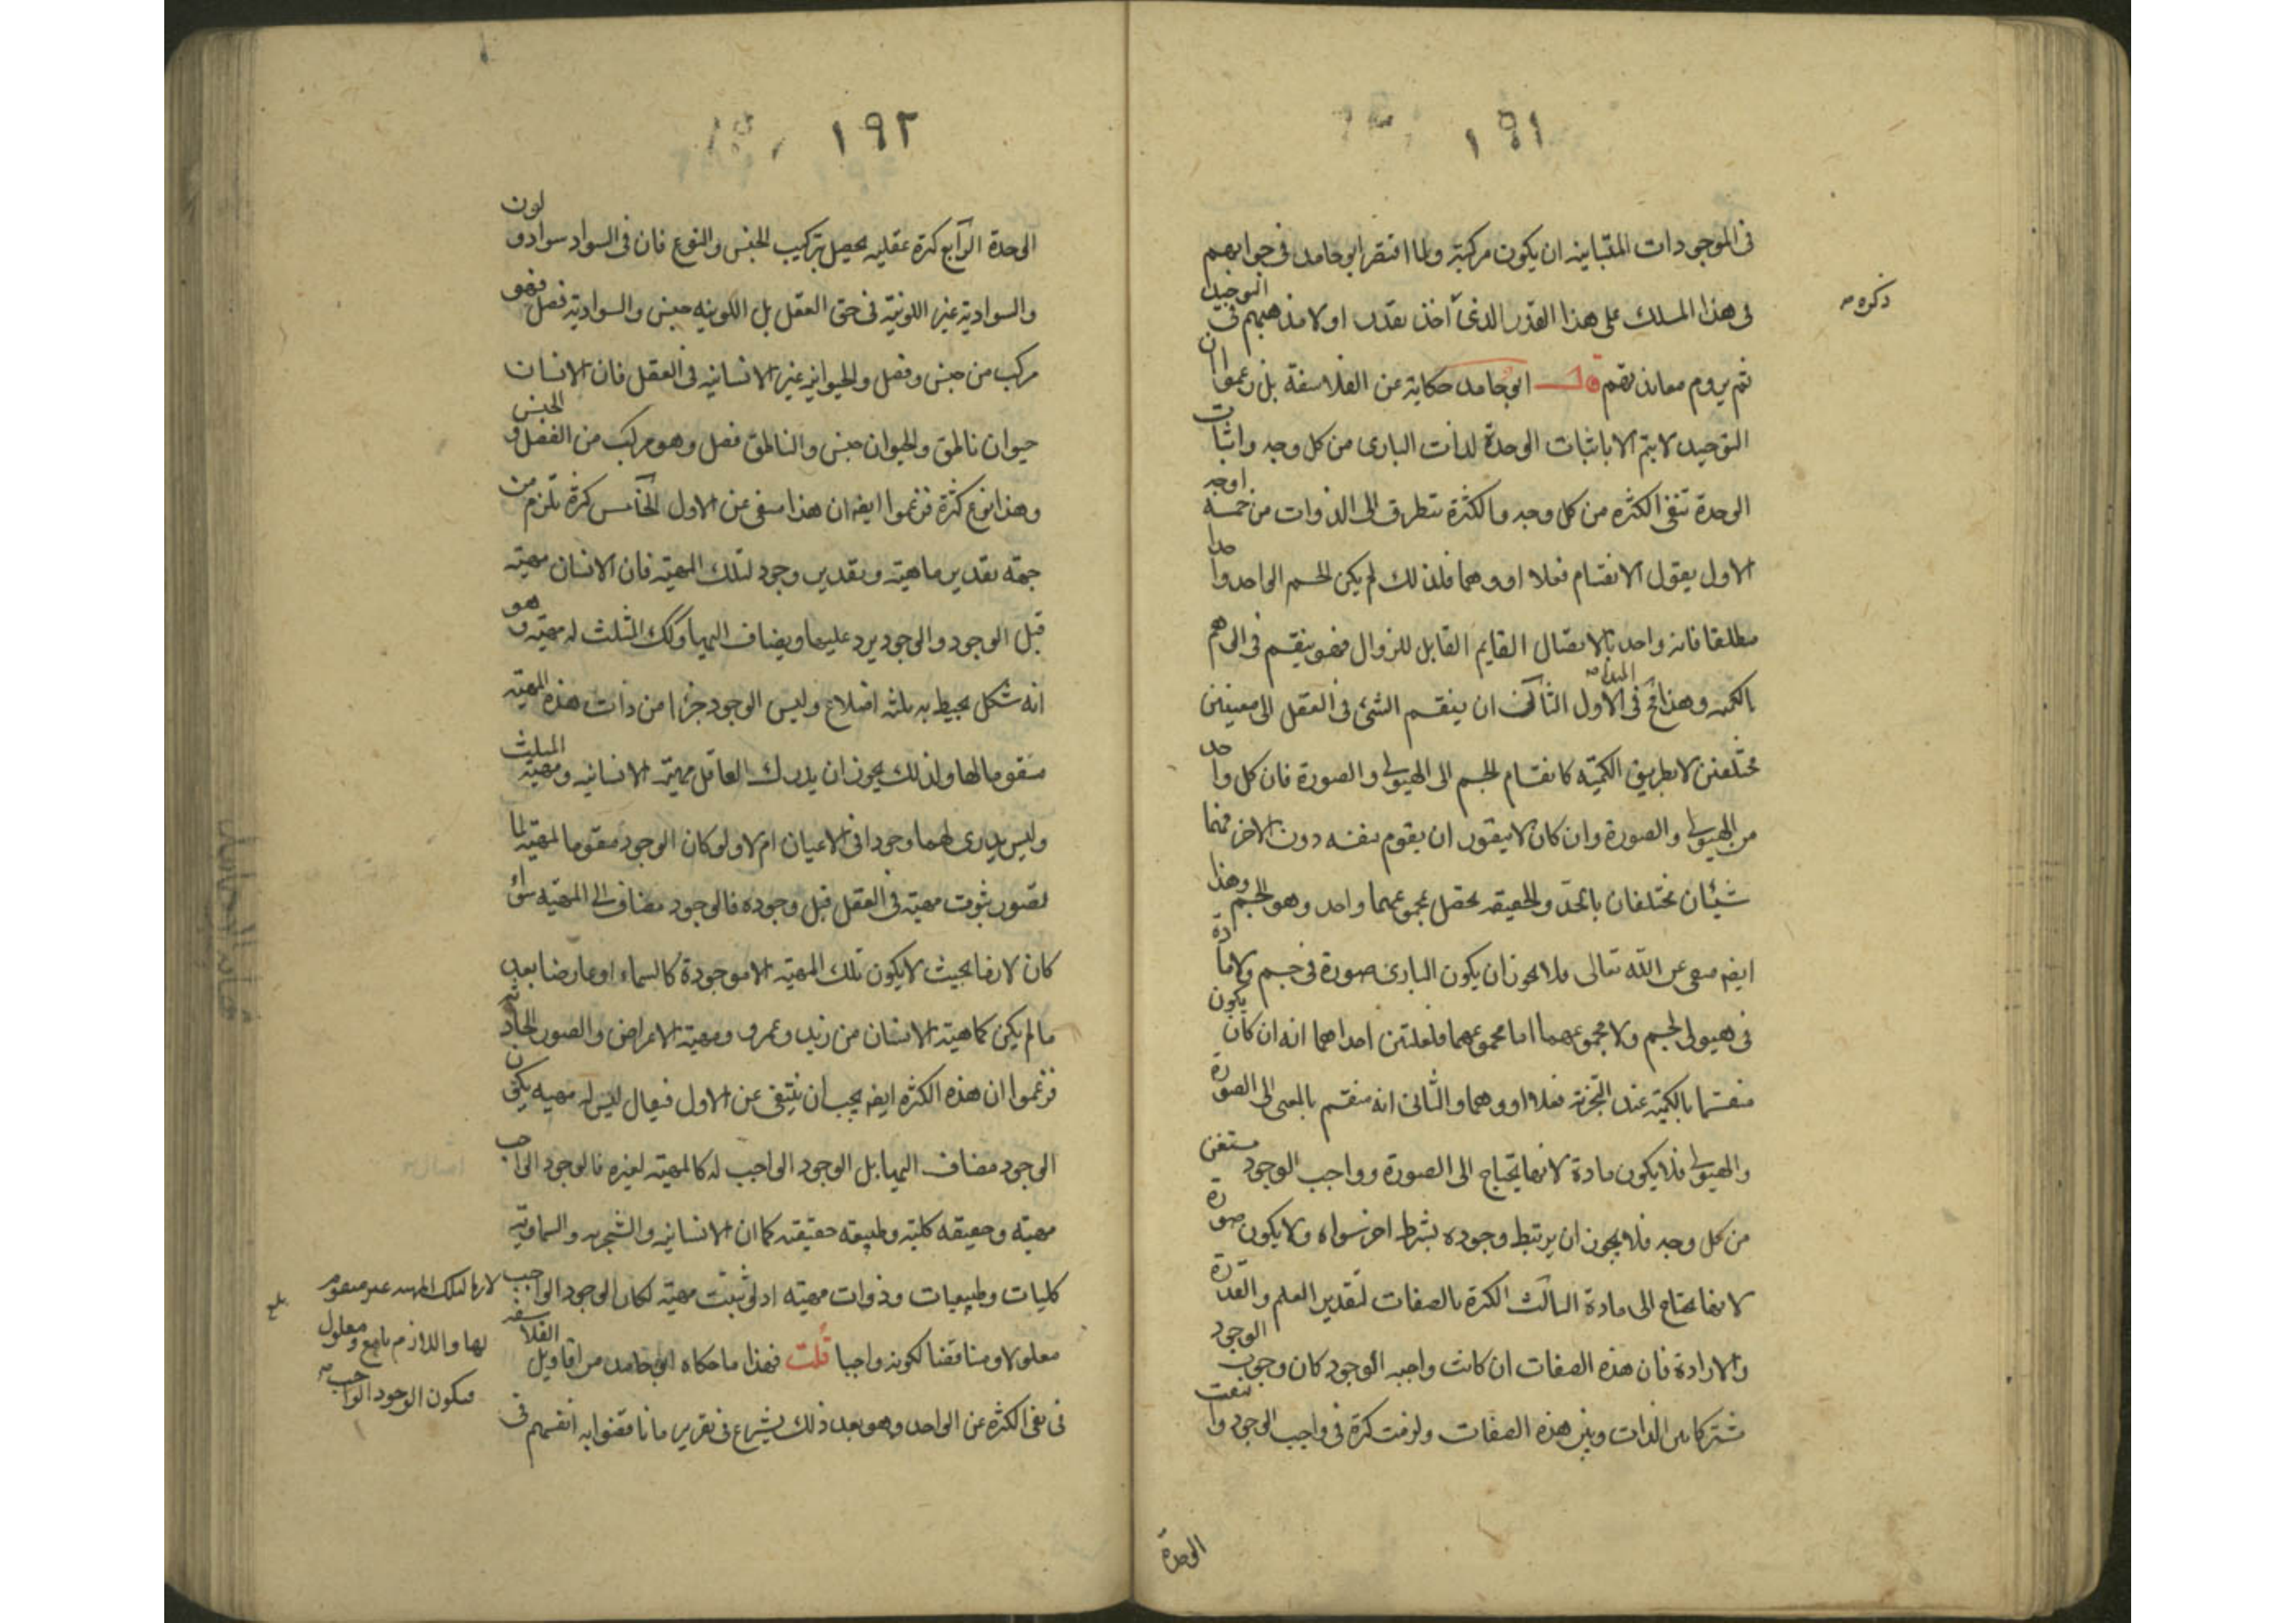 ١٩١
فى الموجودات المتباينه ان يكون مركبة ولما اقتصر ابو حامد فى جوابهم
فى هذا المسلك على هذا القدر الذى أخذ يقدر اولا مذهبهم فى التوحيد
ذكره
ثم يروم معاندتهم قال ابو حامد حكاية عن الفلاسفة بل زعموا ان
التوحيد لا يتم الا باثبات الوحدة لذات البارى من كل وجه واثبات
الوحدة تنفى الكثره من كل وجه والكثرة تتطرق الى الذوات من خمسة اوجه
الاول بقبول الانقسام فعلا او وهما فلذلك لم يكن الجسم الواحد واحدا
مطلقا فانه واحد بالاتصال القايم القابل للزوال فهو ينقسم فى الوهم
بالكميه وهذا مح فى الاول المبدأ الثانى ان ينقسم الشئ فى العقل الى معنيين
مختلفين لا بطريق الكميّه كانقسام الجسم الى الهيولى والصورة فان كل واحد
من الهيولى والصورة وان كان لا يتصور ان يقوم بنفسه دون الاخر فهما
شيئان مختلفان بالحدّ والحقيقه يحصل بمجموعهما واحد وهو الجسم وهذا
ايضه منفى عن الله تعالى فلا يجوز ان يكون البارى صورة فى جسم ولا مادة
فى هيولى لجسم ولا مجموعهما اما مجموعهما فلعلتين احداهما انه ان كان يكون
منقسما بالكميّه عند التجزية فعلا او وهما والثانى انه منقسم بالمعنى الى الصورة
والهيولى فلا يكون مادة لانها تحتاج الى الصورة وواجب الوجود مستغن
من كل وجه فلا يجوز ان يرتبط وجوده بشرط اخر سواه ولا يكون صورة
لانها تحتاج الى مادة الثالث الكثرة بالصفات لتقدير العلم والقدرة
والارادة فان هذه الصفات ان كانت واجبه الوجود كان وجوب الوجود
مشتركا بين الذات وبين هذه الصفات ولزمت كثرة فى واجب الوجود وانتفت
الوحدة
١٩٢
الوحدة الرابع كثرة عقليه تحصل بتركيب الجنس والنوع فان فى السواد سوادو لون
والسوادية غير اللونيّة فى حق العقل بل اللونيه جنس والسوادية فصل فهو
مركب من جنس وفصل والحيوانيه غير الانسانيه فى العقل فان الانسان
حيوان ناطق والحيوان جنس والناطق فصل وهو مركب من الفصل و الجنس
وهذا نوع كثرة فزعموا ايضه ان هذا منفى عن الاول الخامس كثرة تلزم من
جهة تقدير ماهية وتقدير وجود لتلك المهيّه فان الانسان مهيّه
قبل الوجود والوجود يرد عليها ويضاف اليها وكك المثلث له مهيّه و هو
انه شكل يحيط به ثلثه اضلاع وليس الوجود جزا من ذات هذه المهيّه
مقوما لها ولذلك يجوز ان يدرك العاقل مهيّة الانسانيه ومهيّه المثلث
وليس يدرى لهما وجودا فى الاعيان ام لا ولو كان الوجود مقوما لمهيّة لما
تصور ثبوت مهيّة فى العقل قبل وجوده فالوجود مضاف الى المهيّه سواء
كان لازما بحيث لا يكون تلك المهيّه الا موجودة كالسماء او عارضا بعد
ما لم يكن كماهية الانسان من زيد وعمرو ومهيّة الاعراض والصور الحادثة
فزعموا ان هذه الكثرة ايضه يجب ان تنتفى عن الاول فيقال ليس له مهيه يكون
الوجود مضاف اليها بل الوجود الواجب له كالمهيّه لغيره فالوجود الواجب
مهيّة وحقيقه كليّه وطبيعه حقيقيّه كما ان الانسانيه والشجريه والسماويّه
كليات وطبيعيات وذوات مهيّه اذ لو ثبتت مهيّة لكان الوجود الواجب
لازما لتلك المهيه غير مقوم
لها واللازم تابع ومعلول
فيكون الوجود الواجب
معلولا ومناقضا لكونه واجبا قلت فهذا ما حكاه ابو حامد من اقاويل الفلاسفه
فى نفى الكثره عن الواحد وهو بعد ذلك يشرع فى تقرير ما ناقضوا به انفسهم فى